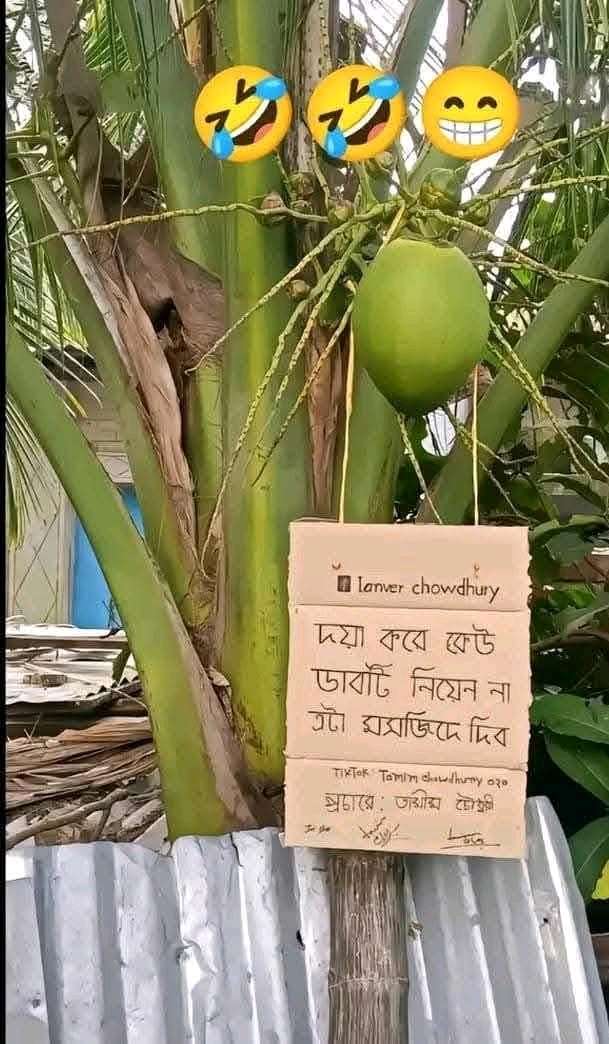 Tanver chowdhury
দয়া করে কেউ
ডাবটি নিয়েন না
এটা মসজিদে দিব
TIKTOK: Tamim chowdhury 020
প্রচারে: তামীম চৌধুরী